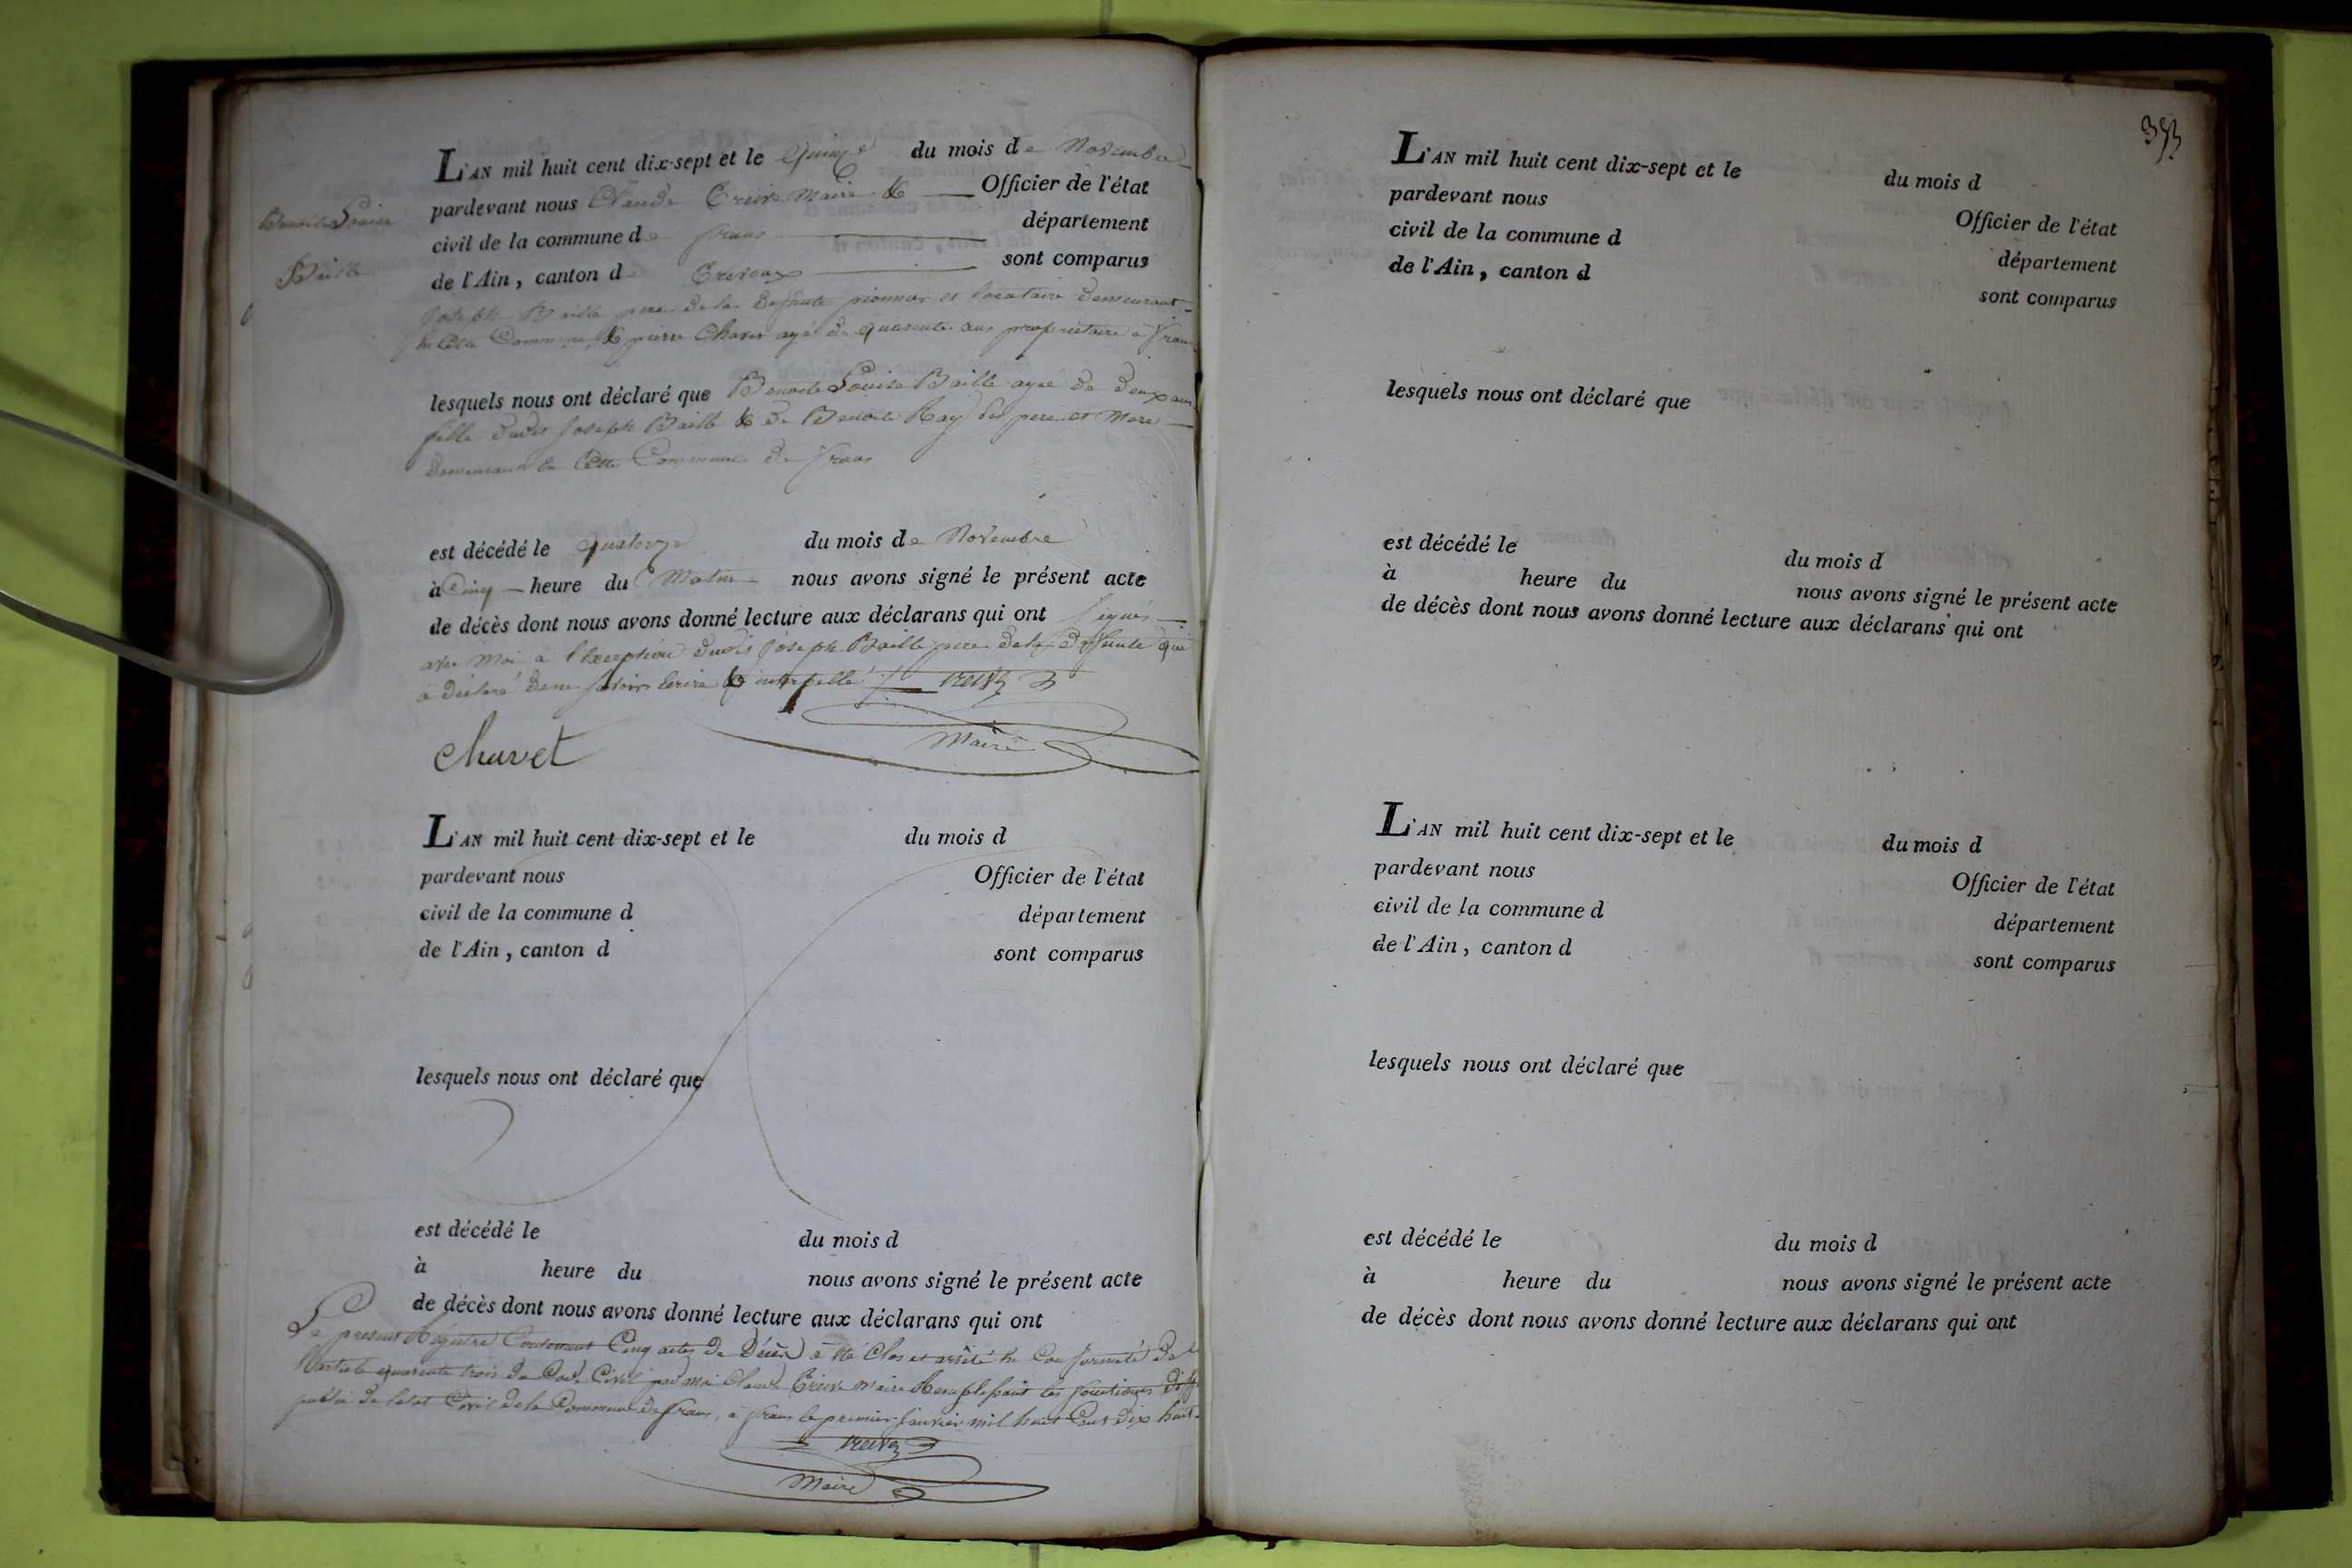 Benoite Louise
Baille
L'AN mil huit cent dix-sept et le quinze du mois de Novembre
pardevant nous Claude Treive Maire & Officier de l'état
civil de la commune de frans département
de l'Ain, canton de Trevoux sont comparus
Joseph Baille pere de la defunte pionnier et locataire demeurant
en Cette Commune, & pierre Chavet agé de quarante ans propriétaire a frans
lesquels nous ont déclaré que Benoite Louise Baille agee de deux ans
fille dudit Joseph Baille & de Benoite Ray ses pere et Mere
demeurant en Cette Commune de frans
est décédé le quatorze du mois de Novembre
à Cinq heure du Matin nous avons signé le présent acte
de décès dont nous avons donné lecture aux déclarans qui ont signés
avec moi a l'exception dudit Joseph Baille pere de la defunte qui
a déclaré de ne savoir ecrire & interpellé
Maire
chavet
L'AN mil huit cent dix-sept et le du mois d
pardevant nous Officier de l'état
civil de la commune d département
de l'Ain, canton d sont comparus
lesquels nous ont déclaré que
est décédé le du mois d
à heure du nous avons signé le présent acte
de décès dont nous avons donné lecture aux déclarans qui ont
Le present Régistre Contenant Cinq actes de Décès a été Clos et arrêté en Conformité de
l'article quarante trois du Code Civil par moi Claude Treive Maire Remplissant les fonctions
public de l'etat Civil de la Commune de frans, a frans le premier Janvier mil huit Cent dix huit
Maire
353
L'AN mil huit cent dix-sept et le du mois d
pardevant nous Officier de l'état
civil de la commune d département
de l'Ain, canton d sont comparus
lesquels nous ont déclaré que
est décédé le du mois d
à heure du nous avons signé le présent acte
de décès dont nous avons donné lecture aux déclarans qui ont
L'AN mil huit cent dix-sept et le du mois d
pardevant nous Officier de l'état
civil de la commune d département
de l'Ain, canton d sont comparus
lesquels nous ont déclaré que
est décédé le du mois d
à heure du nous avons signé le présent acte
de décès dont nous avons donné lecture aux déclarans qui ont